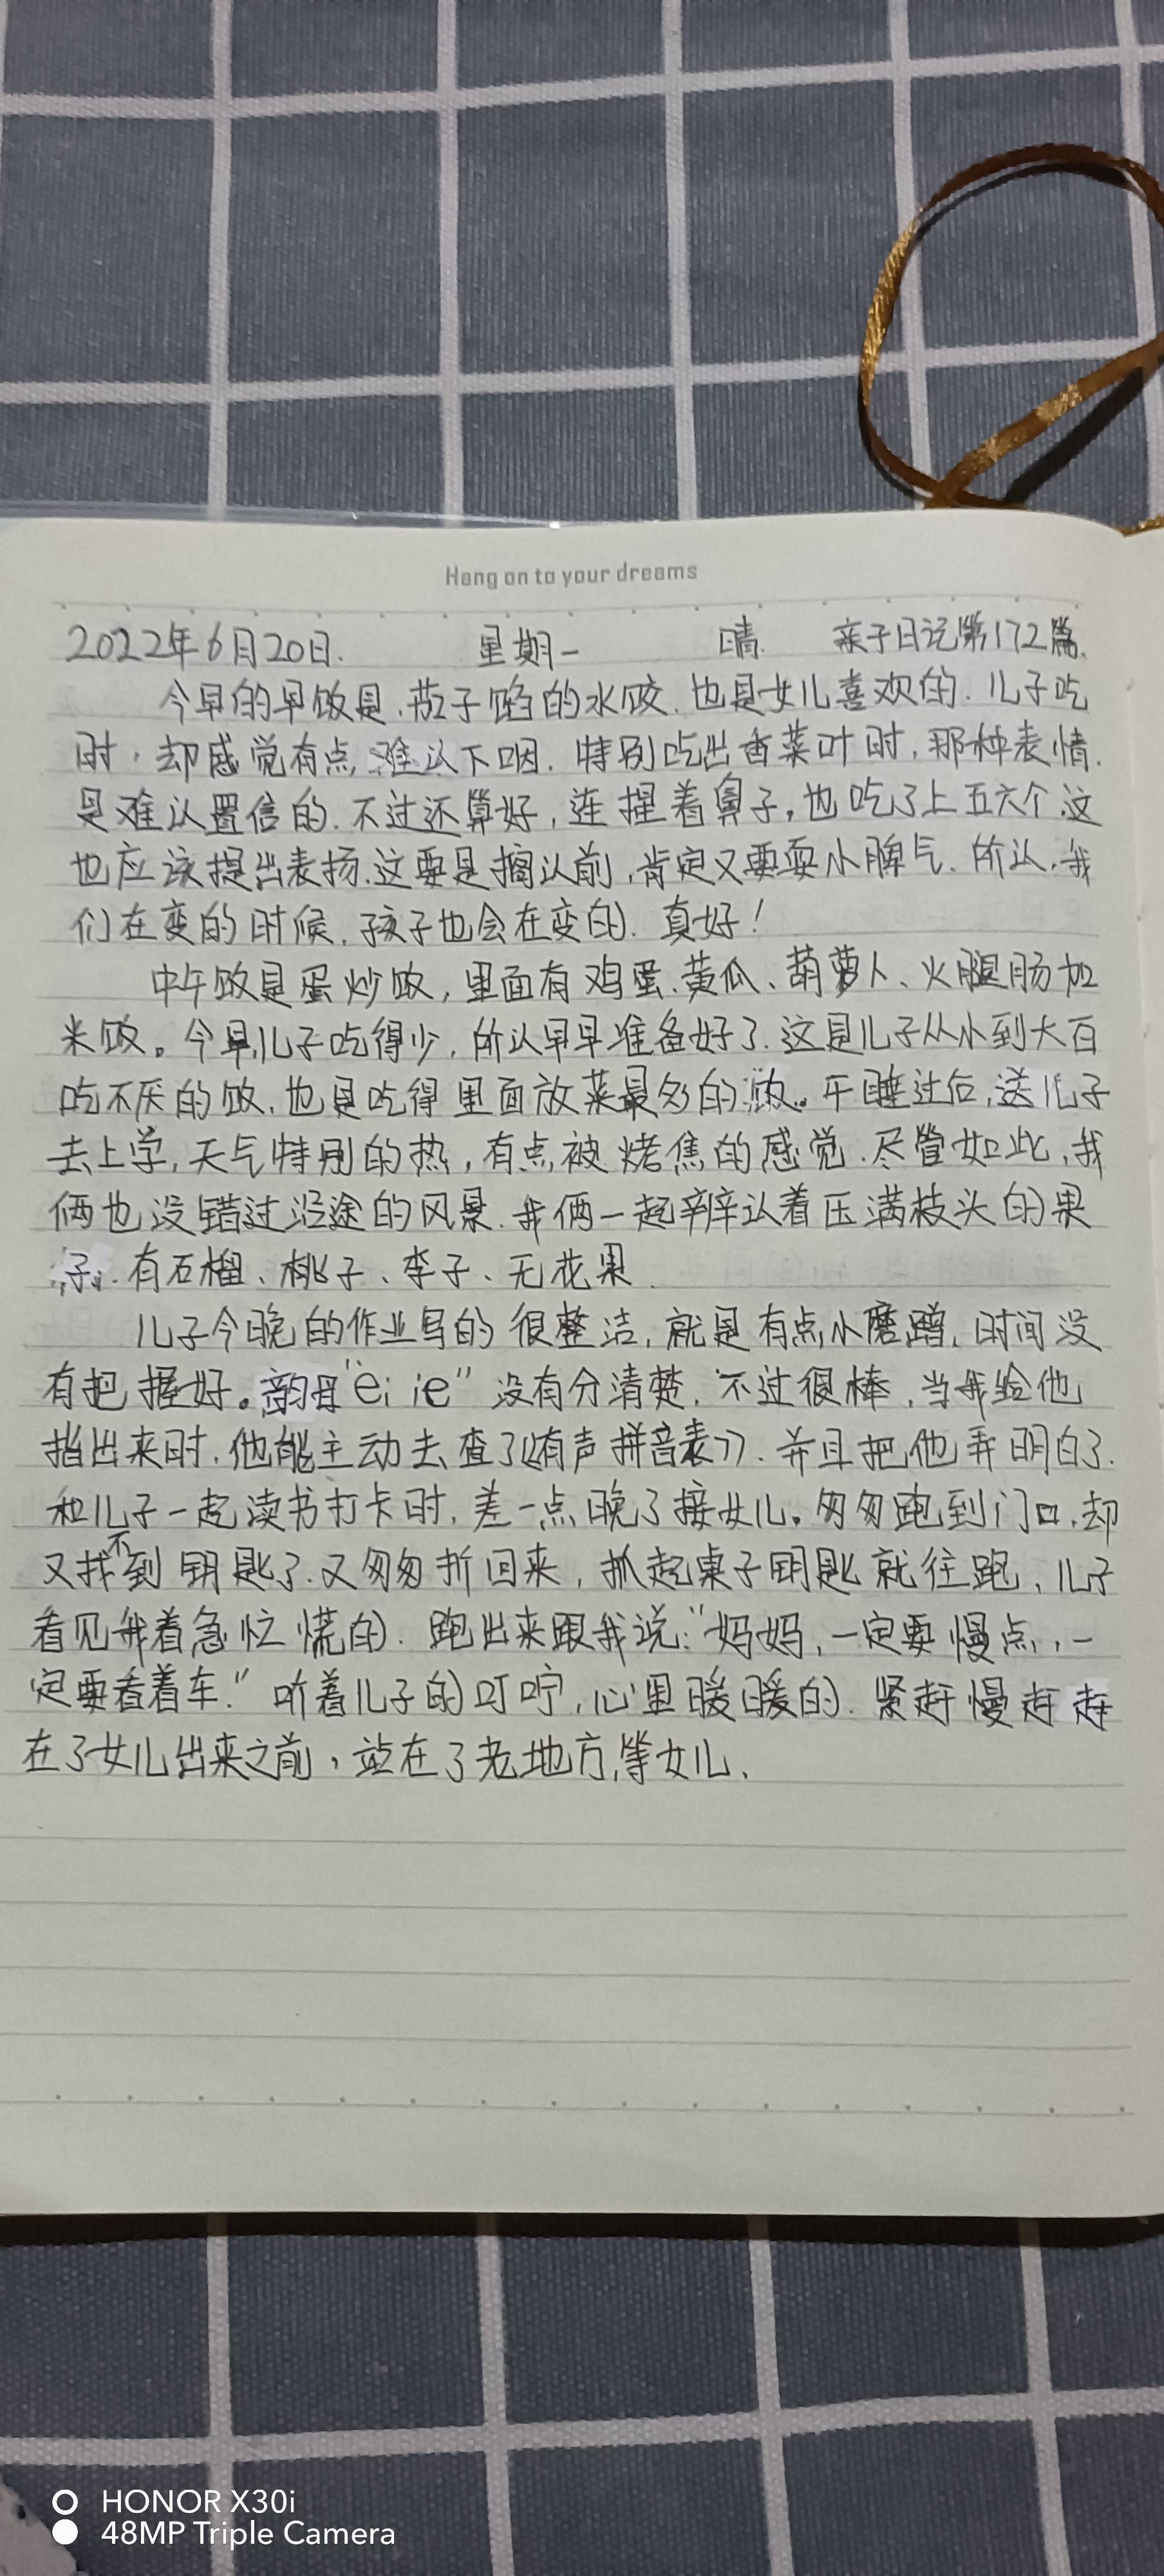 Hang on to your dreams
2022年6月20日. 星期一 晴. 亲子日记第172篇.
今早的早饭是.茄子馅的水饺.也是女儿喜欢的.儿子吃
时，却感觉有点难以下咽.特别吃出香菜叶时,那种表情.
是难以置信的.不过还算好,连捏着鼻子,也吃了上五六个.这
也应该提出表扬.这要是搁以前,肯定又要耍小脾气.所以.我
们在变的时候.孩子也会在变的.真好!
中午饭是蛋炒饭,里面有鸡蛋、黄瓜、葫萝卜、火腿肠加
米饭。今早儿子吃得少,所以早早准备好了.这是儿子从小到大百
吃不厌的饭,也是吃得里面放菜最多的饭。午睡过后,送儿子
去上学,天气特别的热,有点被烤焦的感觉.尽管如此,我
俩也没错过沿途的风景.我俩一起辨认着压满枝头的果
子.有石榴、桃子、李子、无花果.
儿子今晚的作业写的很整洁,就是有点小磨蹭,时间没
有把握好。韵母"ei ie"没有分清楚,不过很棒,当我给他
指出来时,他能主动去查了《有声拼音表》.并且把他弄明白了.
和儿子一起读书打卡时,差一点晚了接女儿。匆匆跑到门口,却
又找不到钥匙了.又匆匆折回来,抓起桌子钥匙就往跑、儿子
看见我着急忙慌的.跑出来跟我说:"妈妈,一定要慢点,一
定要看着车."听着儿子的叮咛,心里暖暖的.紧赶慢赶赶
在了女儿出来之前,站在了老地方,等女儿.
HONOR X30i
48MP Triple Camera